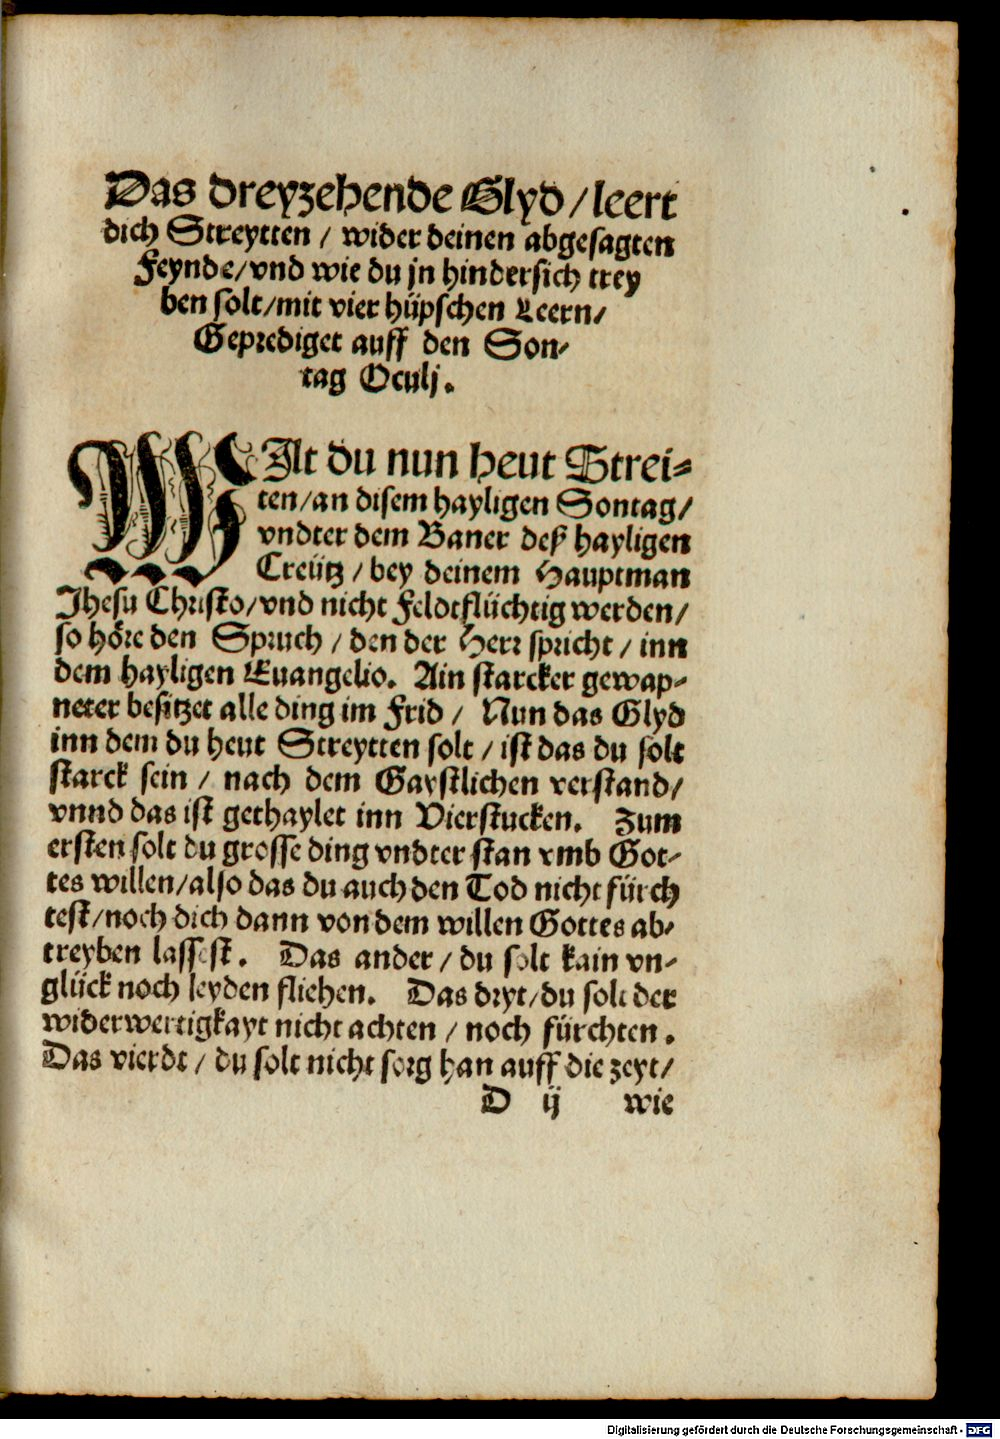 Das dreyzehende Glyd / leert
dich Streytten / wider deinen abgesagten
Feynde / vnd wie du jn hindersich trey
ben solt / mit vier hüpschen Leern /
Geprediget auff den Son-
tag Oculj.
WIlt du nun heut Strei-
ten / an disem hayligen Sontag /
vndter dem Baner deß hayligen
Creütz / bey deinem Hauptman
Jhesu Christo / vnd nicht Feldtflüchtig werden /
so höre den Spruch / den der Herr spricht / inn
dem hayligen Euangelio. Ain starcker gewap-
neter besitzet alle ding im Frid / Nun das Glyd
inn dem du heut Streytten solt / ist das du solt
starck sein / nach dem Gaystlichen verstand /
vnnd das ist gethaylet inn Vierstucken. Zum
ersten solt du grosse ding vndter stan vmb Got-
tes willen / also das du auch den Tod nicht fürch
test / noch dich dann von dem willen Gottes ab-
treyben lassest. Das ander / du solt kain vn-
glück noch leyden fliehen. Das dryt / du solt der
widerwertigkayt nicht achten / noch fürchten.
Das vierdt / du solt nicht sorg han auff die zeyt /
D ij wie
Digitalisierung gefördert durch die Deutsche Forschungsgemeinschaft - DFG